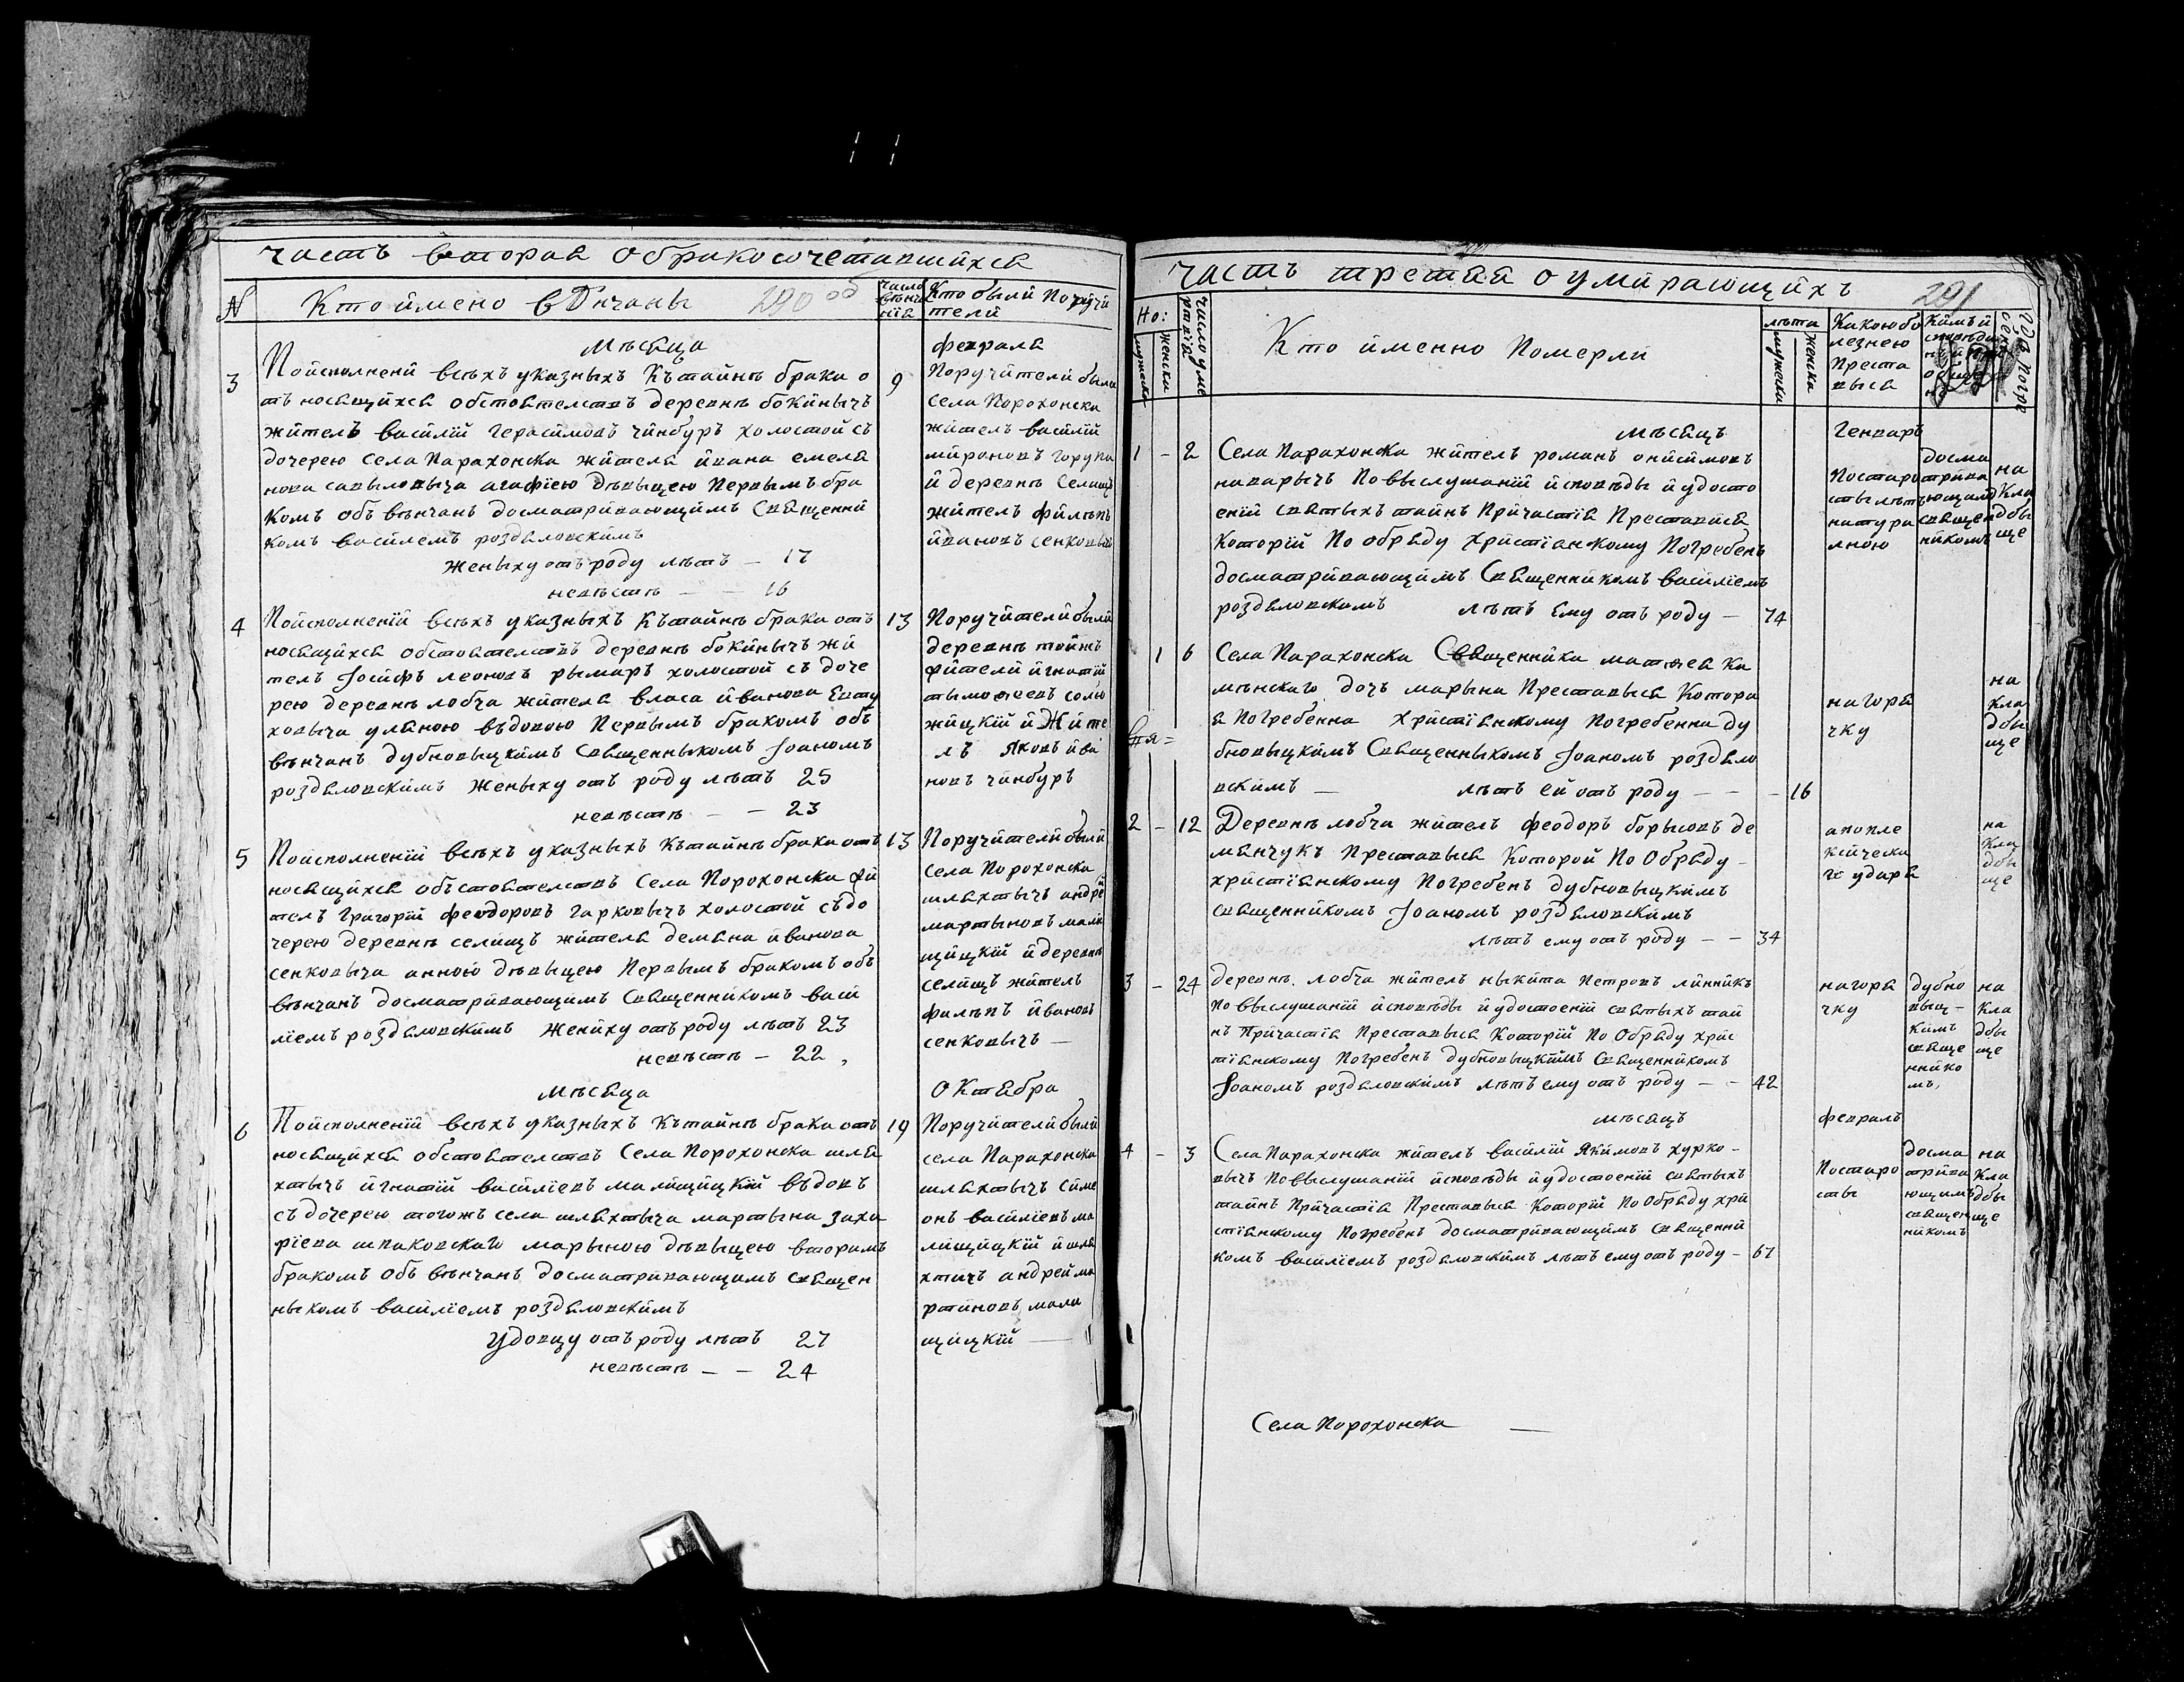 часть вторая обракосочетавшихся
290 об
N
Кто имено вѣнчаны
число вѣнчания
Кто были поручители
мѣсяца
феврала
3
Поисполнені всѣхъ указныхъ Къ тайнѣ брака о
тъ носящихся обстоятелствъ деревнѣ бокинычъ
жителъ василій герасимовъ чинбуръ холостой съ
дочерею села Парахонска жителя ивана емеля
нова савыловыча агафіею дѣвыцею Первымъ бра
комъ объ вѣнчанъ досматривающимъ Священни
комъ василемъ роздяловскимъ
Женыху отъ роду лѣтъ — 17
невѣстѣ — — 16
9
Поручители были
села Порохонска
жителъ василій
мироновъ горупа
и деревнѣ Селищъ
жителъ филыпъ
ивановъ сенковычъ
4
Поисполненій всѣхъ указныхъ Къ тайнѣ брака отъ
носящихся обстоятелствъ деревнѣ бокинычъ жи
телъ Іосифъ леоновъ рымаръ холостой съ доче
рею деревнѣ лобча жителя власа иванова Евту
ховыча уляною въдовою Первымъ бракомъ объ
вѣнчанъ дубновыцкимъ Священныкомъ Іоаномъ
роздяловскимъ Женыху отъ роду лѣтъ 25
невѣстѣ — — 23
13
Поручители были
деревнѣ тоижъ
жители игнатій
тымофеевъ солю
жицкій и Жите
лъ Яковъ ива
новъ чинбуръ
5
Поисполненій всѣхъ указныхъ Къ тайнѣ брака отъ
носящихся объстоятелствъ Села Порохонска жи
телъ Григорій феодоровъ гарковычъ холостой съ до
черею деревнѣ селищъ жителя демяна иванова
сенковыча анною дѣвыцею Первымъ бракомъ объ
вѣнчанъ досматривающимъ Священникомъ васи
ліемъ роздяловскимъ Жениху отъ роду лѣтъ 23
невѣстѣ — 22
13
Поручители были
села Порохонска
шляхтычъ андрей
мартыновъ мали
щицкій и деревнѣ
селищъ жителъ
филыпъ ивановъ
сенковычъ —
мѣсяца
Октября
6
Поисполненій всѣхъ указныхъ Къ тайнѣ брака отъ
носящихся обстоятелствъ Села Порохонска шля
хтычъ игнатій василіевъ малищицкій въдовъ
съ дочерею тогожъ села шляхтыча мартына заха
ріева шпаковскаго марыною дѣвыцею вторымъ
бракомъ объ вѣнчанъ досматривающимъ священ
ныкомъ василіемъ роздяловскимъ
Удовцу отъ роду лѣтъ 27
невѣстѣ — — 24
19
Поручители были
села Парахонска
шляхтычъ симе
онъ василіевъ ма
лищицкій и шля
хтичъ андрей ма
ртиновъ мали
щицкій —
часть третая о умирающихъ
291
Но:
мужеска
женска
число умертвія
Кто именно Померли
лѣта
мужески
женска
Какою бо
лезнею
Преста
выся
Кимъ и
гдѣ погребены
мѣсяцъ
Генваръ
1 - 2
Села Парахонска жителъ романъ онисимовъ
наварычъ Повыслушаній исповѣды и удосто
еній святыхъ тайнъ Причастія Преставися
Которій По обряду христіанкому Погребенъ
досматривающимъ Священникомъ василіемъ
роздяловскимъ лѣтъ Ему отъ роду —
74
Постаро
сты лѣтъ
натура
лною
досма
трива
ющимъ
священ
никомъ
на
Кла
дбы
ще
1 6
Села Парахонска Священника матѳея ка
мѣнскаго дочъ марына Преставыся Котора
я Погребенна христіянскому Погребенна ду
бновыцкимъ Священныкомъ Іоаномъ роздяло
вскимъ — лѣтъ ей отъ роду — — 16
нагоря
чку
на
Кла
дбы
ще
2 - 12
Деревнѣ лобча жителъ феодоръ борысовъ де
мянчукъ Преставыся Которой По Обряду
христіянскому Погребенъ дубновыцкимъ
священникомъ Іоаномъ роздяловскимъ
лѣтъ ему отъ роду — — 34
апопле
ксическа
го удара
на
Кла
дбы
ще
3 - 24
деревнѣ лобча жителъ ныкита Петровъ линникъ
повыслушаній исповѣды и удостоеній святыхъ тай
нъ Причастія Преставыся Которій По Обряду хрис
тіянскому Погребенъ дубновыцкимъ Священникомъ
Іоаномъ роздяловскимъ лѣтъ ему отъ роду — — 42
нагоря
чку
дубно
выц-
кимъ
свяще
ннико
мъ
на
Кла
дбы
ще
мѣсяцъ
февралъ
4 - 3
Села Парахонска жителъ василій Якимовъ хурко-
вычъ Повыслушаній исповѣды и удостоеній святыхъ
тайнъ Причастія Преставыся Которій По Обряду хри
стіянскому Погребенъ досматривающимъ священни
комъ василіемъ роздяловскимъ лѣтъ ему отъ роду — 67
Постаро
сты
досма
трива
ющимъ
священ
никомъ
на
Кла
дбы
ще
Села Порохонска —